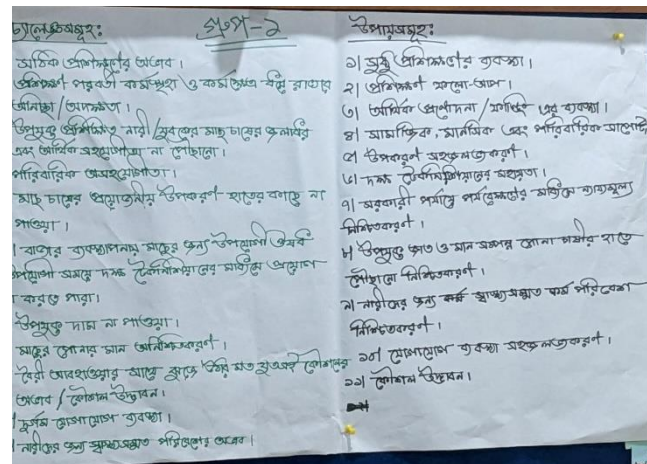 চ্যালেঞ্জসমূহঃ
গ্রুপ-২
সঠিক প্রশিক্ষণের অভাব।
প্রশিক্ষণ পরবর্তী কর্মস্পৃহা ও কর্মক্ষেত্রে
অনাস্থা/অদক্ষতা।
উপযুক্ত প্রশিক্ষিত নারী/যুবকের মাছ চাষের
এবং আর্থিক সহযোগীতা না পৌছানো।
পারিবারিক অসহযোগীতা।
মাছ চাষের প্রয়োজনীয় উপকরণ হাতের কাছে না
পাওয়া।
বাজার ব্যবস্থাপনায় মাছের জন্য উপযোগী ঔষধ
উপযোগী সময়ে দক্ষ টেকনিশিয়ানের মাধ্যমে প্রয়োগ
করতে পারা।
উপযুক্ত দাম না পাওয়া।
মাছের পোনার মান অনিশ্চিতকরণ।
বৈরী আবহাওয়ার সাথে কৌশলের
অভাব/কৌশল উদ্ভাবন।
দুর্গম যোগাযোগ ব্যবস্থা।
নারীদের জন্য স্বাস্থ্যসম্মত পরিবেশের অভাব।
উপায়সমূহঃ
১। সুষ্ঠু প্রশিক্ষণের ব্যবস্থা।
২। প্রশিক্ষণ ফলো-আপ।
৩। আর্থিক প্রণোদনা/ এর ব্যবস্থা।
৪। সামাজিক, মানসিক এবং পারিবারিক
৫। উপকরণ সহজলভ্যকরণ।
৬। দক্ষ টেকনিশিয়ানের সহায়তা।
৭। সরকারী পর্যায়ে পর্যবেক্ষণের মাধ্যমে ন্যায্যমূল্য
নিশ্চিতকরণ।
৮। উপযুক্ত জাত ও মান সম্পন্ন পোনা চাষীর হাতে
পৌছানো নিশ্চিতকরণ।
৯। নারীদের জন্য স্বাস্থ্যসম্মত কর্ম পরিবেশ
নিশ্চিতকরণ।
১০। যোগাযোগ ব্যবস্থা সহজলভ্যকরণ।
১১। কৌশল উদ্ভাবন।